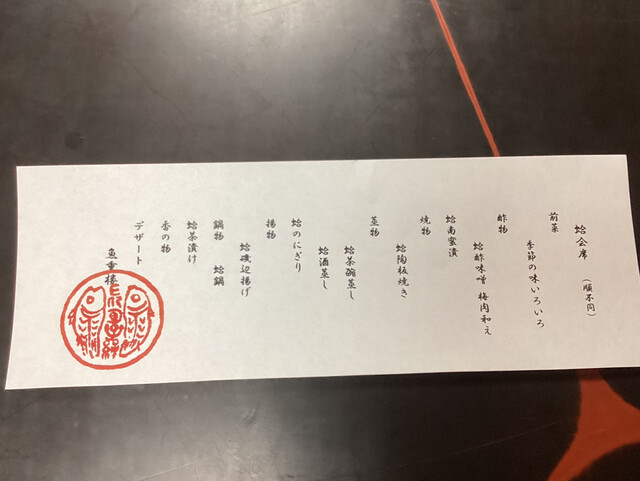 蛤会席　（順不同）
前菜
季節の味いろいろ
酢物
蛤酢味噌　梅肉和え
蛤南蛮漬
焼物
蛤陶板焼き
蒸物
蛤茶碗蒸し
蛤酒蒸し
蛤のにぎり
揚物
蛤磯辺揚げ
鍋物　蛤鍋
蛤茶漬け
香の物
デザート
魚重楼